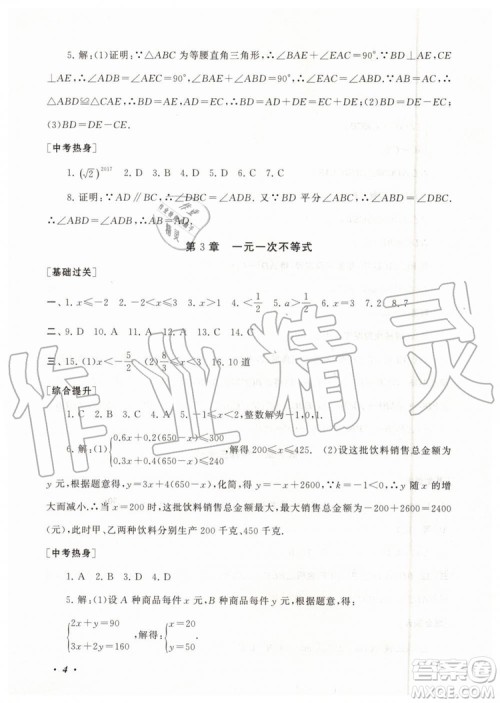 5. 解:(1)证明:∵△ABC 为等腰直角三角形,∴∠BAE+∠EAC=90°,∵BD⊥AE,CE
⊥AE,∴∠ABD+∠BAE=90°,∴∠ABD=∠CAE,∵∠ADB=∠AEC=90°,AB=AC,∴
△ABD≌△CAE,∴BD=AE,AD=CE,∵AE=AD+DE,∴BD=CE+DE;(2)BD=DE-CE;
(3)BD=DE-CE.
[中考热身]
1. (√2)²⁰¹⁷ 2. D 3. D 4. D 5. D 6. C 7. C
8. 证明:∵AD∥BC,∴∠DBC=∠ADB.∵BD 平分∠ABC,∴∠ABD=∠DBC,∴∠ABD
=∠ADB,∴AB=AD.
第 3 章 一元一次不等式
[基础过关]
一、1. x≤-2 2. -2<x≤3 3. x<1/2 4. <1/2
二、9. D 10. A 11. C 12. B 13. D 14. B
三、15. (1)x<-5/2 16. 10 道
[综合提升]
6. 解:(1){0.6x+0.2(650-x)≤300 0.3x+0.4(650-x)≤240,解得 200≤x≤450 (2)设这批饮料销售总金额为
y 元,根据题意得,y=3x+4(650-x),化简,得 y=-x+2600,∵k=-1<0,∴y 随 x 的增
大而减小.∴当 x=200 时,这批饮料销售总金额最大,y最大=-200+2600=2400
(元),此时甲、乙两种饮料分别生产 200 千克、450 千克.
[中考热身]
1. A 2. B 3. D 4. D
5. 解:(1)设 A 种商品每件 x 元,B 种商品每件 y 元,根据题意,得:
{2x+y=90 3x+2y=160,解得:{x=20 y=50.
· 4 ·
作业精灵